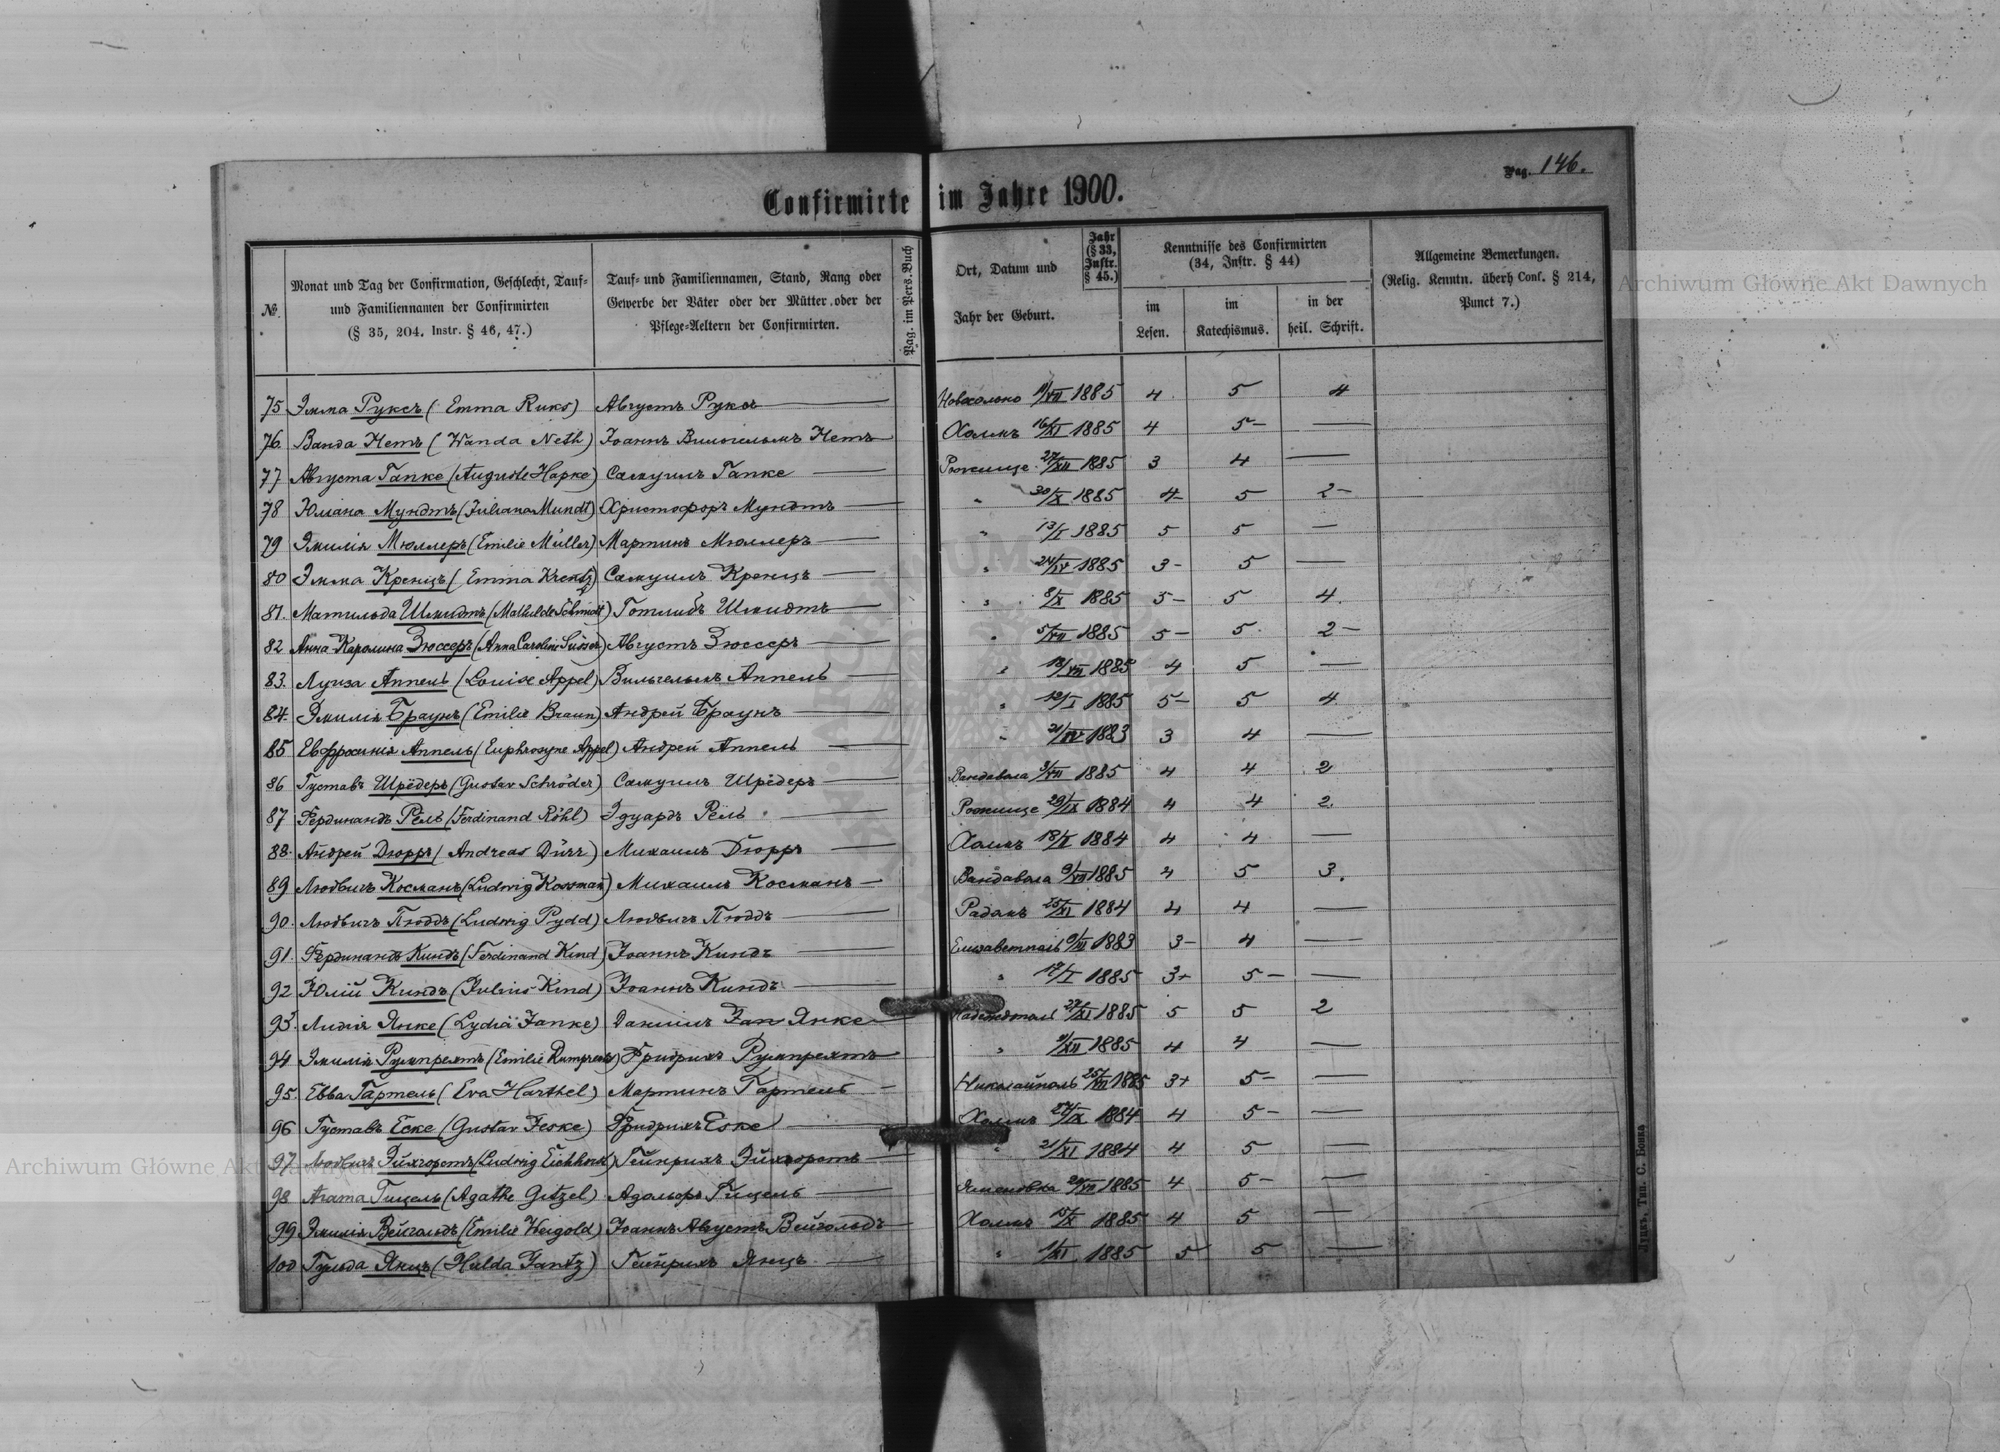 Pag. 146.
Confirmirte im Jahre 1900.
№
Monat und Tag der Confirmation, Geschlecht, Tauf-
und Familiennamen der Confirmirten
(§ 35, 204. Instr. § 46, 47.)
Tauf- und Familiennamen, Stand, Rang oder
Gewerbe der Väter oder der Mütter oder der
Pflege-Aeltern der Confirmirten.
Pag. im Pers. Buch
Ort, Datum und
Jahr der Geburt.
Jahr
(§ 33,
Instr.
§ 45.)
Kenntnisse des Confirmirten
(34, Instr. § 44)
im
Lesen.
im
Katechismus.
in der
heil. Schrift.
Allgemeine Bemerkungen.
(Relig. Kenntn. überh Conf. § 214,
Punct 7.)
75 Эмма Руксъ (Emma Ruks) Августъ Руксъ 1885 4 5 4
76. Ванда Нетъ (Wanda Neth) Іоаннъ Вильгельмъ Нетъ Холмъ 16/XI 1885 4 5- —
77 Августа Гапке (Auguste Hapke) Самуилъ Гапке Рожище 27/XII 1885 3 4 —
78 Юліана Мундтъ (Juliana Mundt) Христофоръ Мундтъ " 30/X 1885 4- 5 2-
79 Эмилія Мюллеръ (Emilie Müller) Мартинъ Мюллеръ " 13/I 1885 5 5 —
80 Эмма Кренцъ (Emma Krentz) Самуилъ Кренцъ " 24/IV 1885 3- 5 —
81. Матильда Шмидтъ (Mathilde Schmidt) Готлибъ Шмидтъ " 8/X 1885 5- 5 4.
82 Анна Каролина Зюссеръ (Anna Caroline Süsser) Августъ Зюссеръ " 5/VII 1885 5- 5 2-
83. Луиза Аппель (Louise Appel) Вильгельмъ Аппель " 18/VII 1885 4 5 —
84. Эмилія Браунъ (Emilie Braun) Андрей Браунъ " 12/I 1885 5- 5 4
85 Евфросинія Аппель (Euphrosyne Appel) Андрей Аппель " 21/IV 1883 3 4 —
86 Густавъ Шрёдеръ (Gustav Schröder) Самуилъ Шрёдеръ Вандавола 1885 4 4 2
87 Фердинандъ Рёль (Ferdinand Röhl) Эдуардъ Рёль Рожище 29/IX 1884 4 4 2.
88. Андрей Дюрръ (Andreas Dürr) Михаилъ Дюрръ Холмъ 18/X 1884 4 4 —
89 Людвигъ Косманъ (Ludwig Kossman) Михаилъ Косманъ Вандавола 1885 4 5 3.
90. Людвигъ Пюддъ (Ludwig Pydd) Людвигъ Пюддъ 25/XI 1884 4 4 —
91. Фердинандъ Киндъ (Ferdinand Kind) Іоаннъ Киндъ Елизаветполь 1883 3- 4 —
92 Юлій Киндъ (Julius Kind) Іоаннъ Киндъ " 17/I 1885 3+ 5- —
93. Лидія Янке (Lydia Janke) Даніилъ Янке 27/XI 1885 5 5 2
94 Эмилія Румпрехтъ (Emilie Rumprecht) Фридрихъ Румпрехтъ " 1885 4 4 —
95. Евва Гартель (Eva Harthel) Мартинъ Гартель Николайполь 25/VII 1885 3+ 5- —
96 Густавъ Еске (Gustav Jeske) Фридрихъ Еске Холмъ 27/IX 1884 4 5- —
97. Людвигъ Эйхгорстъ (Ludwig Eichhorst) Гейнрихъ Эйхгорстъ " 21/XI 1884 4 5 —
98. Агата Гицель (Agathe Gitzel) Адольфъ Гицель 1885 4 5- —
99 Эмилія Вейгольдъ (Emilie Weigold) Іоаннъ Августъ Вейгольдъ Холмъ 15/X 1885 4 5 —
100 Гульда Янцъ (Hulda Jantz) Гейнрихъ Янцъ " 1/XI 1885 5 5 —
Луцкъ, Тип. С. Бонка
Archiwum Główne Akt Dawnych
Archiwum Główne Akt Dawnych